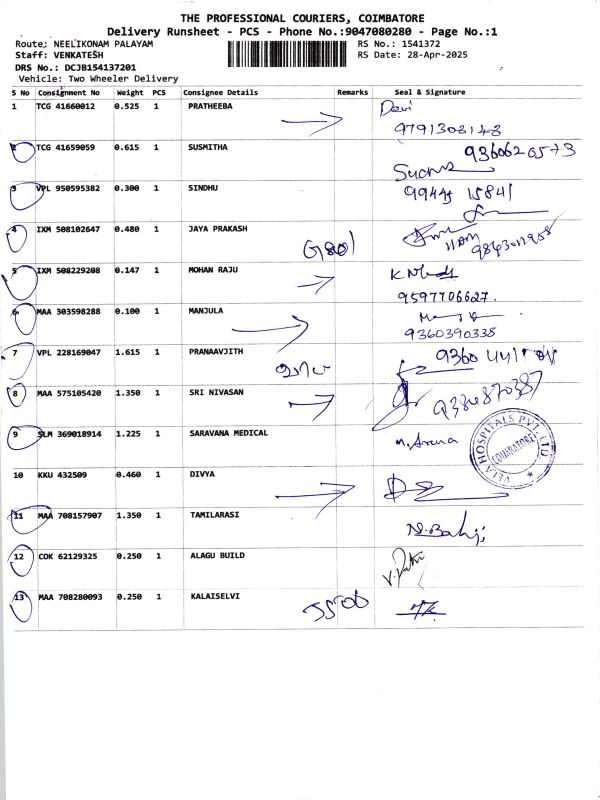 THE PROFESSIONAL COURIERS, COIMBATORE
Delivery Runsheet - PCS - Phone No.:9047080280 - Page No.:1
Route: NEELIKONAM PALAYAM RS No.: 1541372
Staff: VENKATESH RS Date: 28-Apr-2025
DRS No.: DCJB154137201
Vehicle: Two Wheeler Delivery
S No Consignment No Weight PCS Consignee Details Remarks Seal & Signature
1 TCG 41660012 0.525 1 PRATHEEBA Devi
9791308148
2 TCG 41659059 0.615 1 SUSMITHA
3 VPL 950595382 0.300 1 SINDHU
4 IXM 508102647 0.480 1 JAYA PRAKASH
5 IXM 508229208 0.147 1 MOHAN RAJU
9597706627.
6 MAA 303598288 0.100 1 MANJULA
9360390338
7 VPL 228169047 1.615 1 PRANAAVJITH
8 MAA 575105420 1.350 1 SRI NIVASAN
9384870387
9 SLM 369018914 1.225 1 SARAVANA MEDICAL
VELA HOSPITALS PVT. LTD
COIMBATORE
10 KKU 432509 0.460 1 DIVYA
11 MAA 708157907 1.350 1 TAMILARASI
12 COK 62129325 0.250 1 ALAGU BUILD
13 MAA 708280093 0.250 1 KALAISELVI